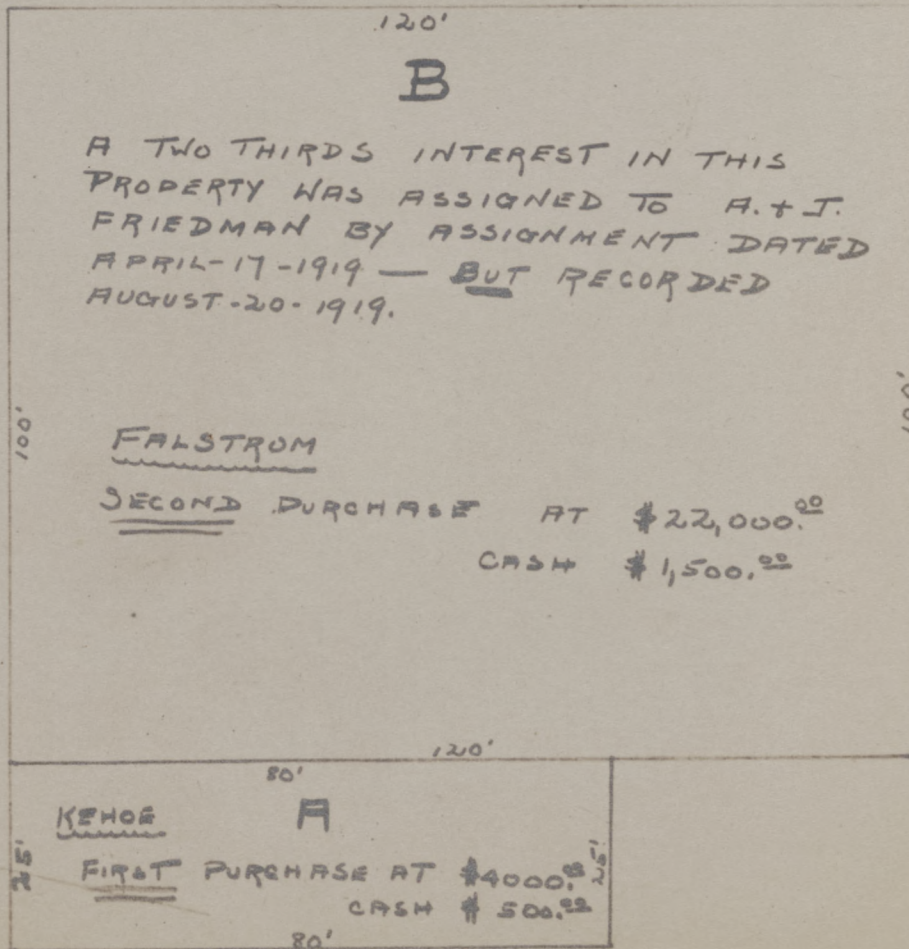 120'
B
A TWO THIRDS INTEREST IN THIS
PROPERTY WAS ASSIGNED TO A. + I.
FRIEDMAN BY ASSIGNMENT DATED
APRIL-17-1919 — BUT RECORDED
AUGUST-20-1919.
100'
100'
FALSTROM
SECOND PURCHASE AT $22,000.00
CASH $1,500.00
120'
80'
KEHOE
A
25'
FIRST PURCHASE AT $4000.00
25'
CASH $ 500.00
80'